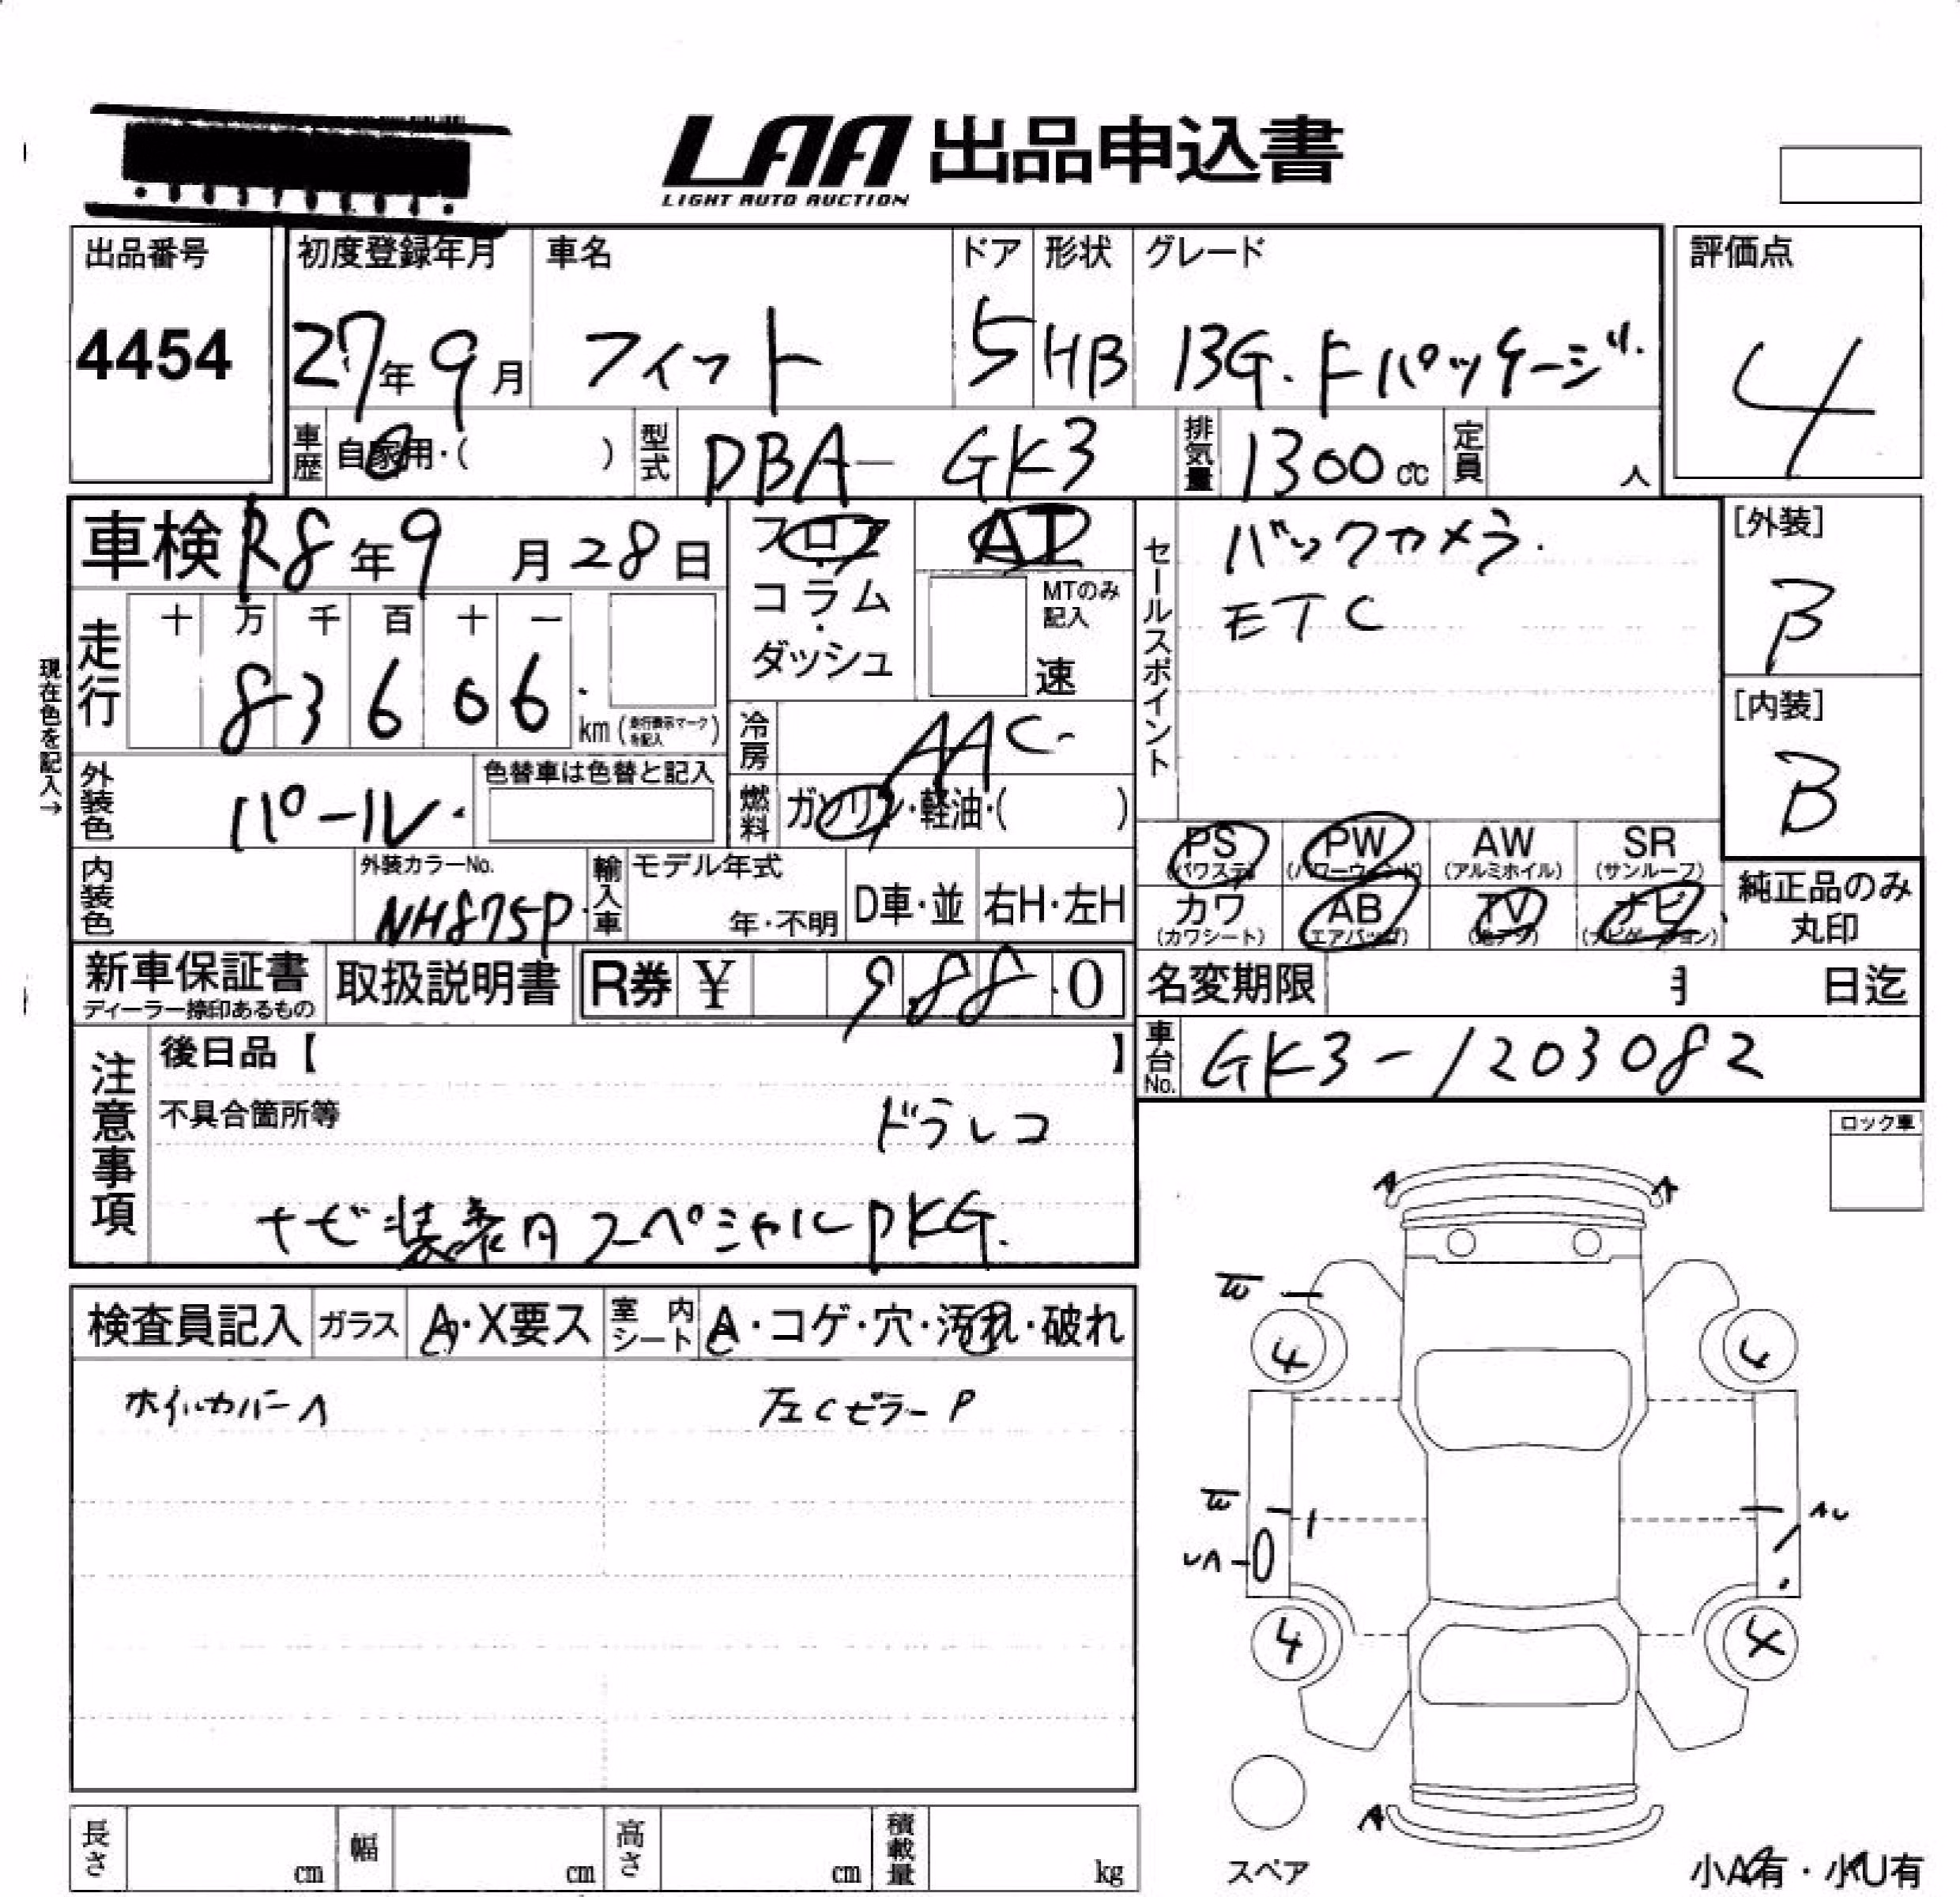 LAA 出品申込書
LIGHT AUTO AUCTION
出品番号 初度登録年月 車名 ドア 形状 グレード 評価点
4454 27年9月 フィット 5 HB 13G.Fパッケージ. 4
車歴 自家用・( ) 型式 DBA-GK3 排気量 1300cc 定員 人
車検 R8年9月28日 フロア AT セールスポイント バックカメラ. [外装]
コラム・ダッシュ MTのみ記入 速 ETC B
現在色を記入→
走行 十 万 千 百 十 一
83606. km (走行表示マークを記入) 冷房 AAC. [内装]
外装色 パール. 色替車は色替と記入 燃料 ガソリン・軽油・( ) B
PS (パワステ) PW (パワーウィンド) AW (アルミホイル) SR (サンルーフ)
内装色 外装カラーNo. NH875P. 輸入車 モデル年式 年・不明 D車・並 右H・左H カワ (カワシート) AB (エアバッグ) TV (地デジ) ナビ (ナビゲーション) 純正品のみ丸印
新車保証書 ディーラー捺印あるもの 取扱説明書 R券 ¥ 9.88.0 名変期限 月 日迄
注意事項 後日品【 】 車台No. GK3-1203082
不具合箇所等 ドラレコ ロック車
ナビ装着用スペシャルPKG.
検査員記入 ガラス A・X要ス 室内シート A・コゲ・穴・汚れ・破れ
ホイルカバーA 左CピラーP
A A
W
4 4
W AU
UA
4 4
A
スペア
小A有・小U有
長さ cm 幅 cm 高さ cm 積載量 kg